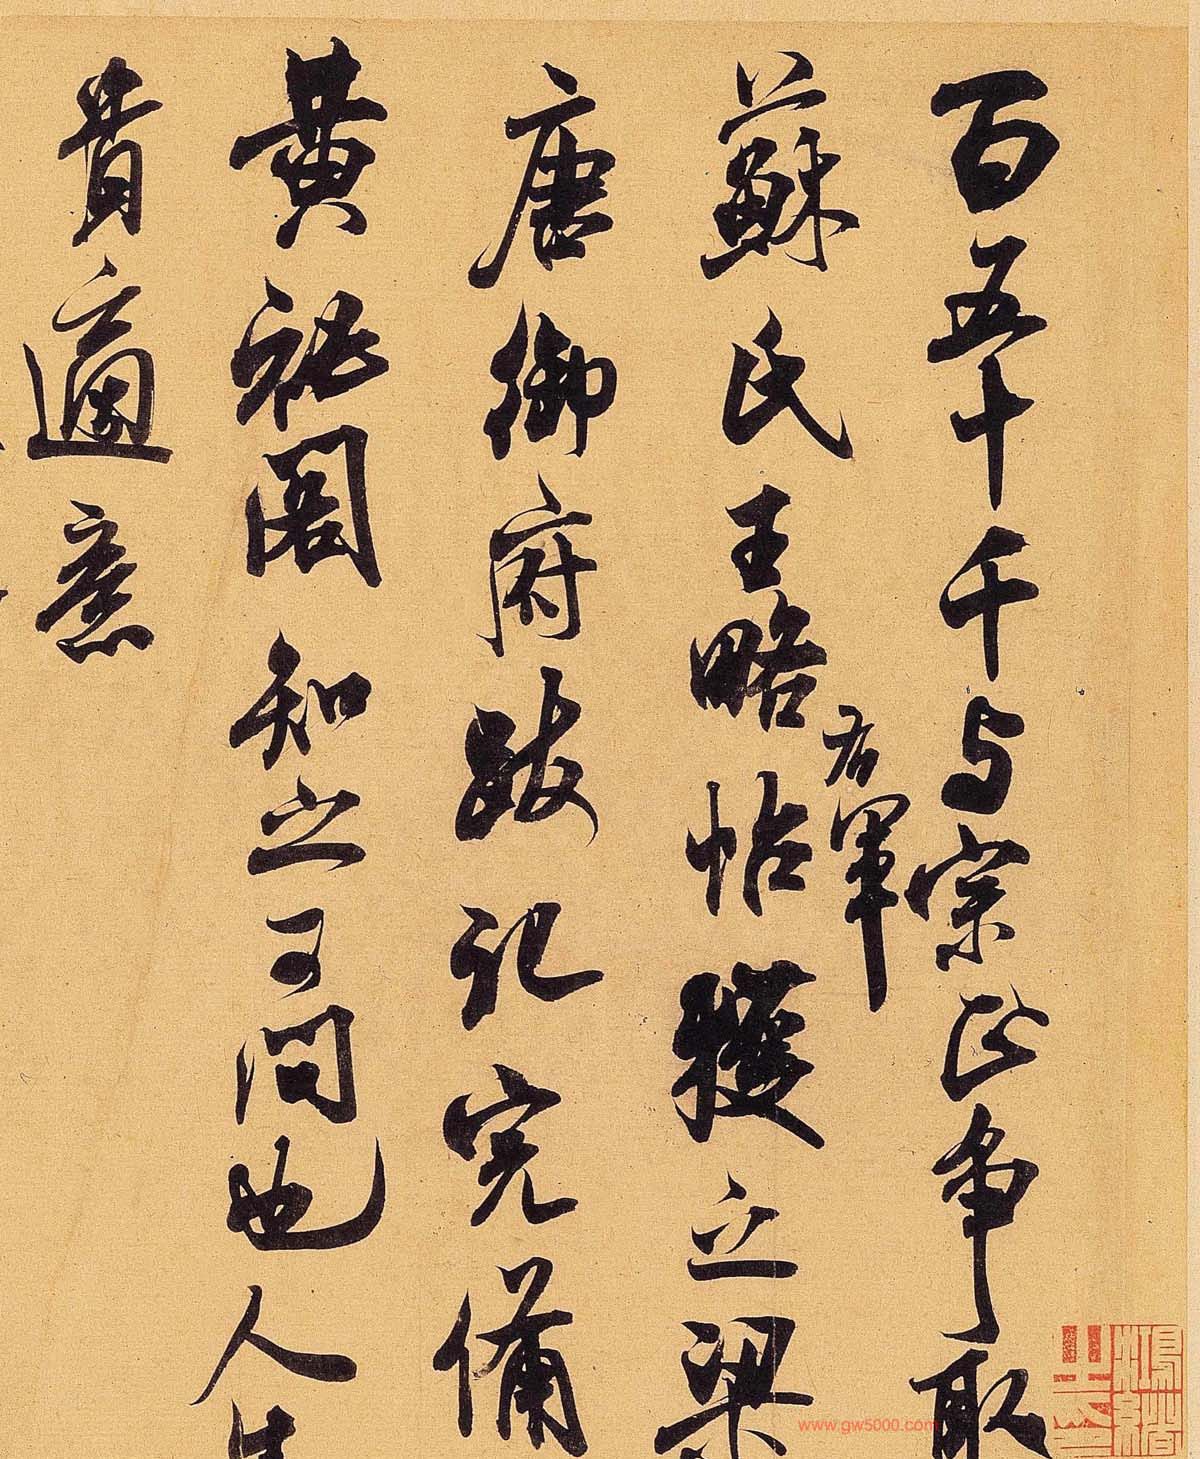 百五十千与宗正争取
蘇氏王略帖右軍獲之梁
唐御府跋記完備
黄秘閣知之可問也人生
貴適意
www.gw5000.com